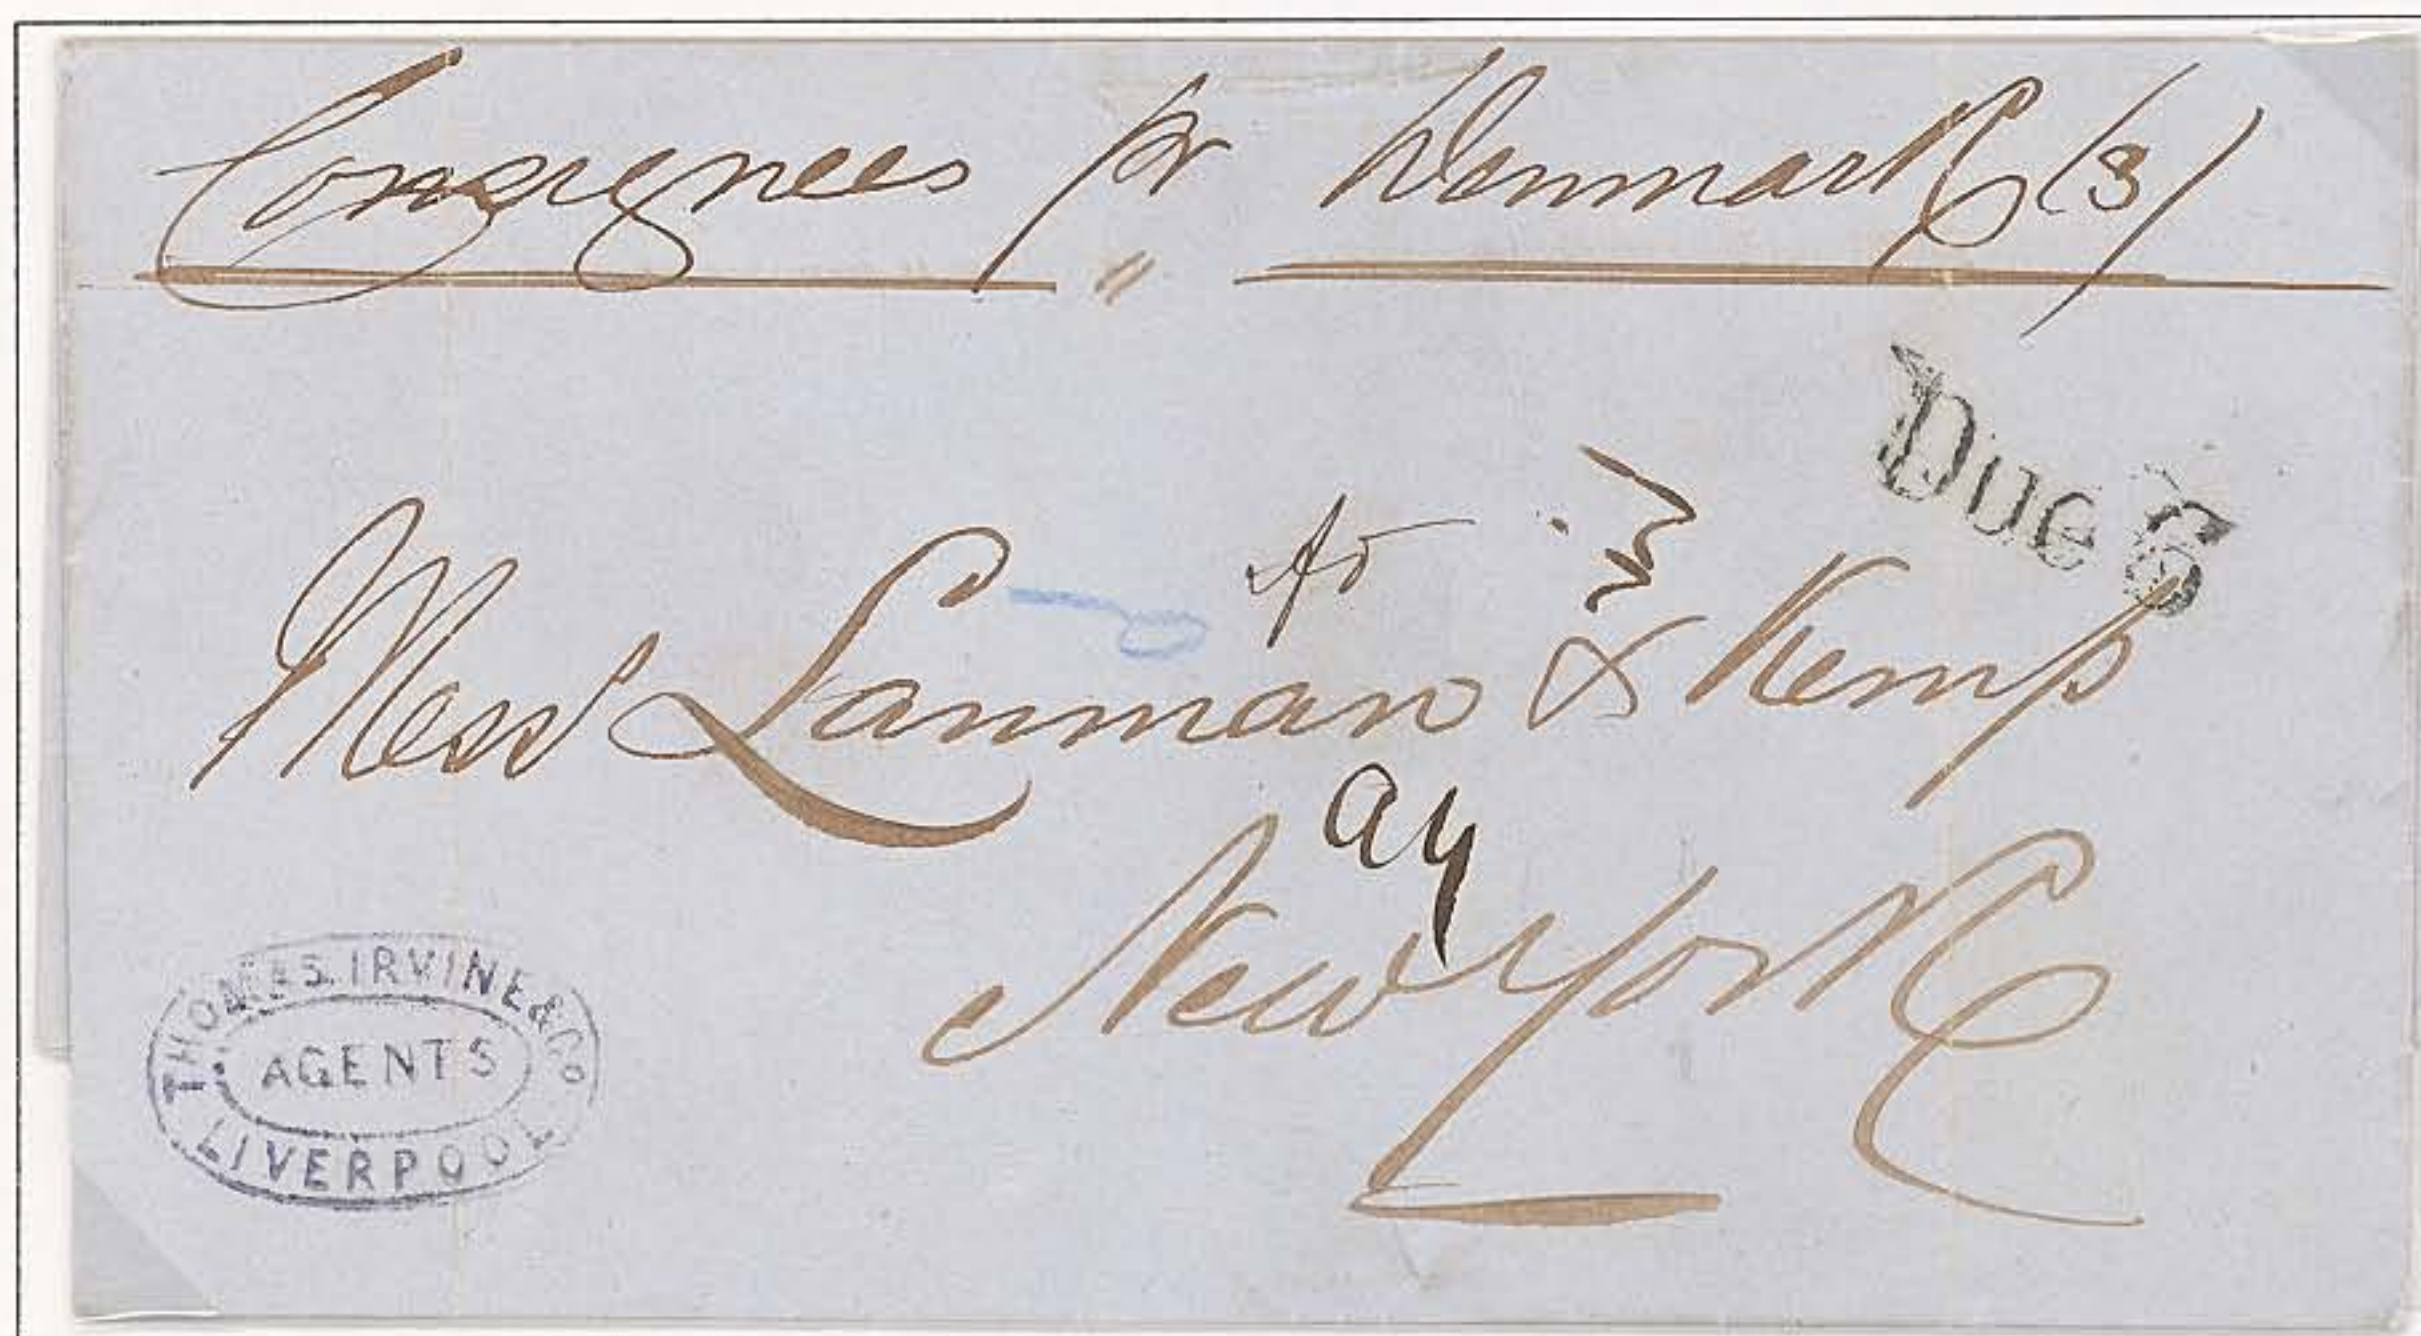 Consignees pr Denmark (3)
Due 6
Messrs Lanman & Kemp
New York
THOMAS IRVINE & Co
AGENTS
LIVERPOOL